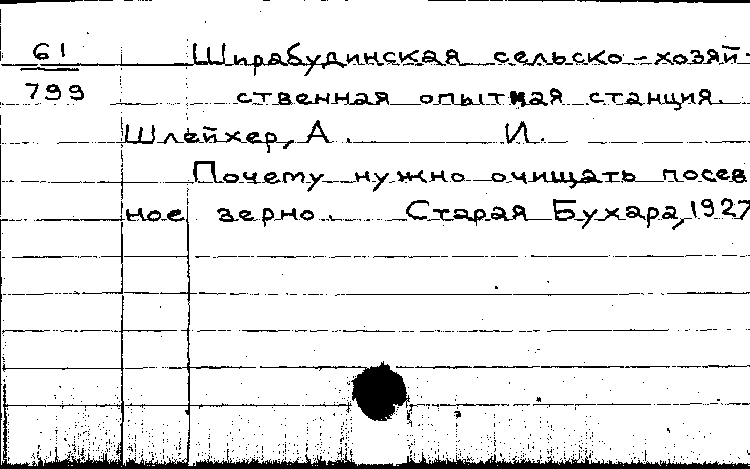 61 Ширабудинская сельско-хозяй-
799 ственная опытная станция.
Шлейхер, А. И.
Почему нужно очищать посев
ное зерно. Старая Бухара, 1927